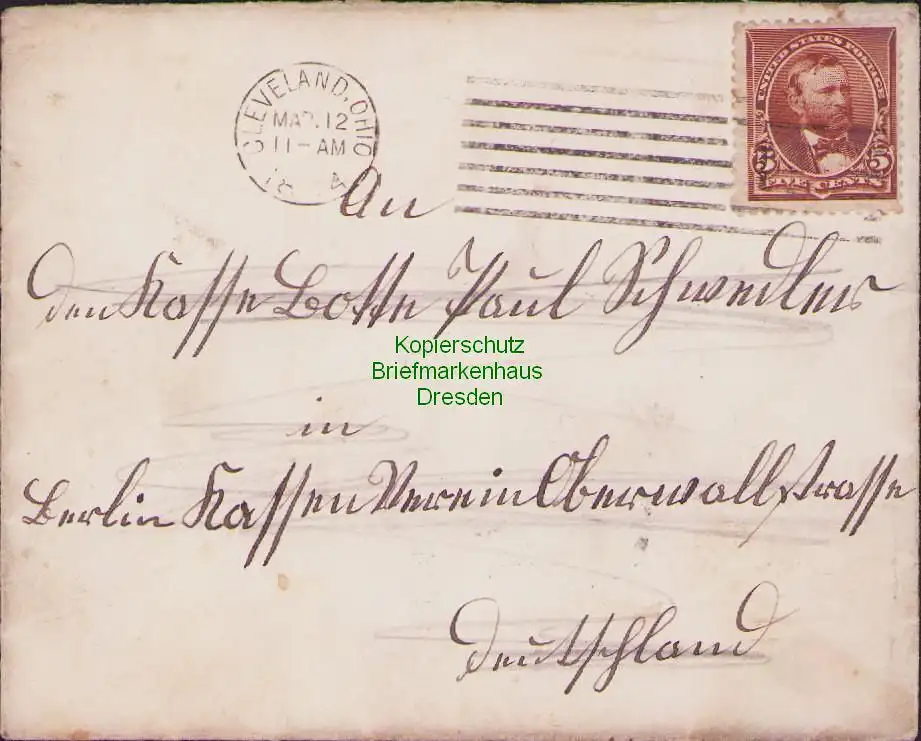 CLEVELAND, OHIO
MAR. 12
11-AM
UNITED STATES POSTAGE
5 5
FIVE CENTS
An
den Kasse Botte Paul Schwedler
Kopierschutz
Briefmarkenhaus
Dresden
in
Berlin Kassen Verein Oberwallstrasse
Deutschland